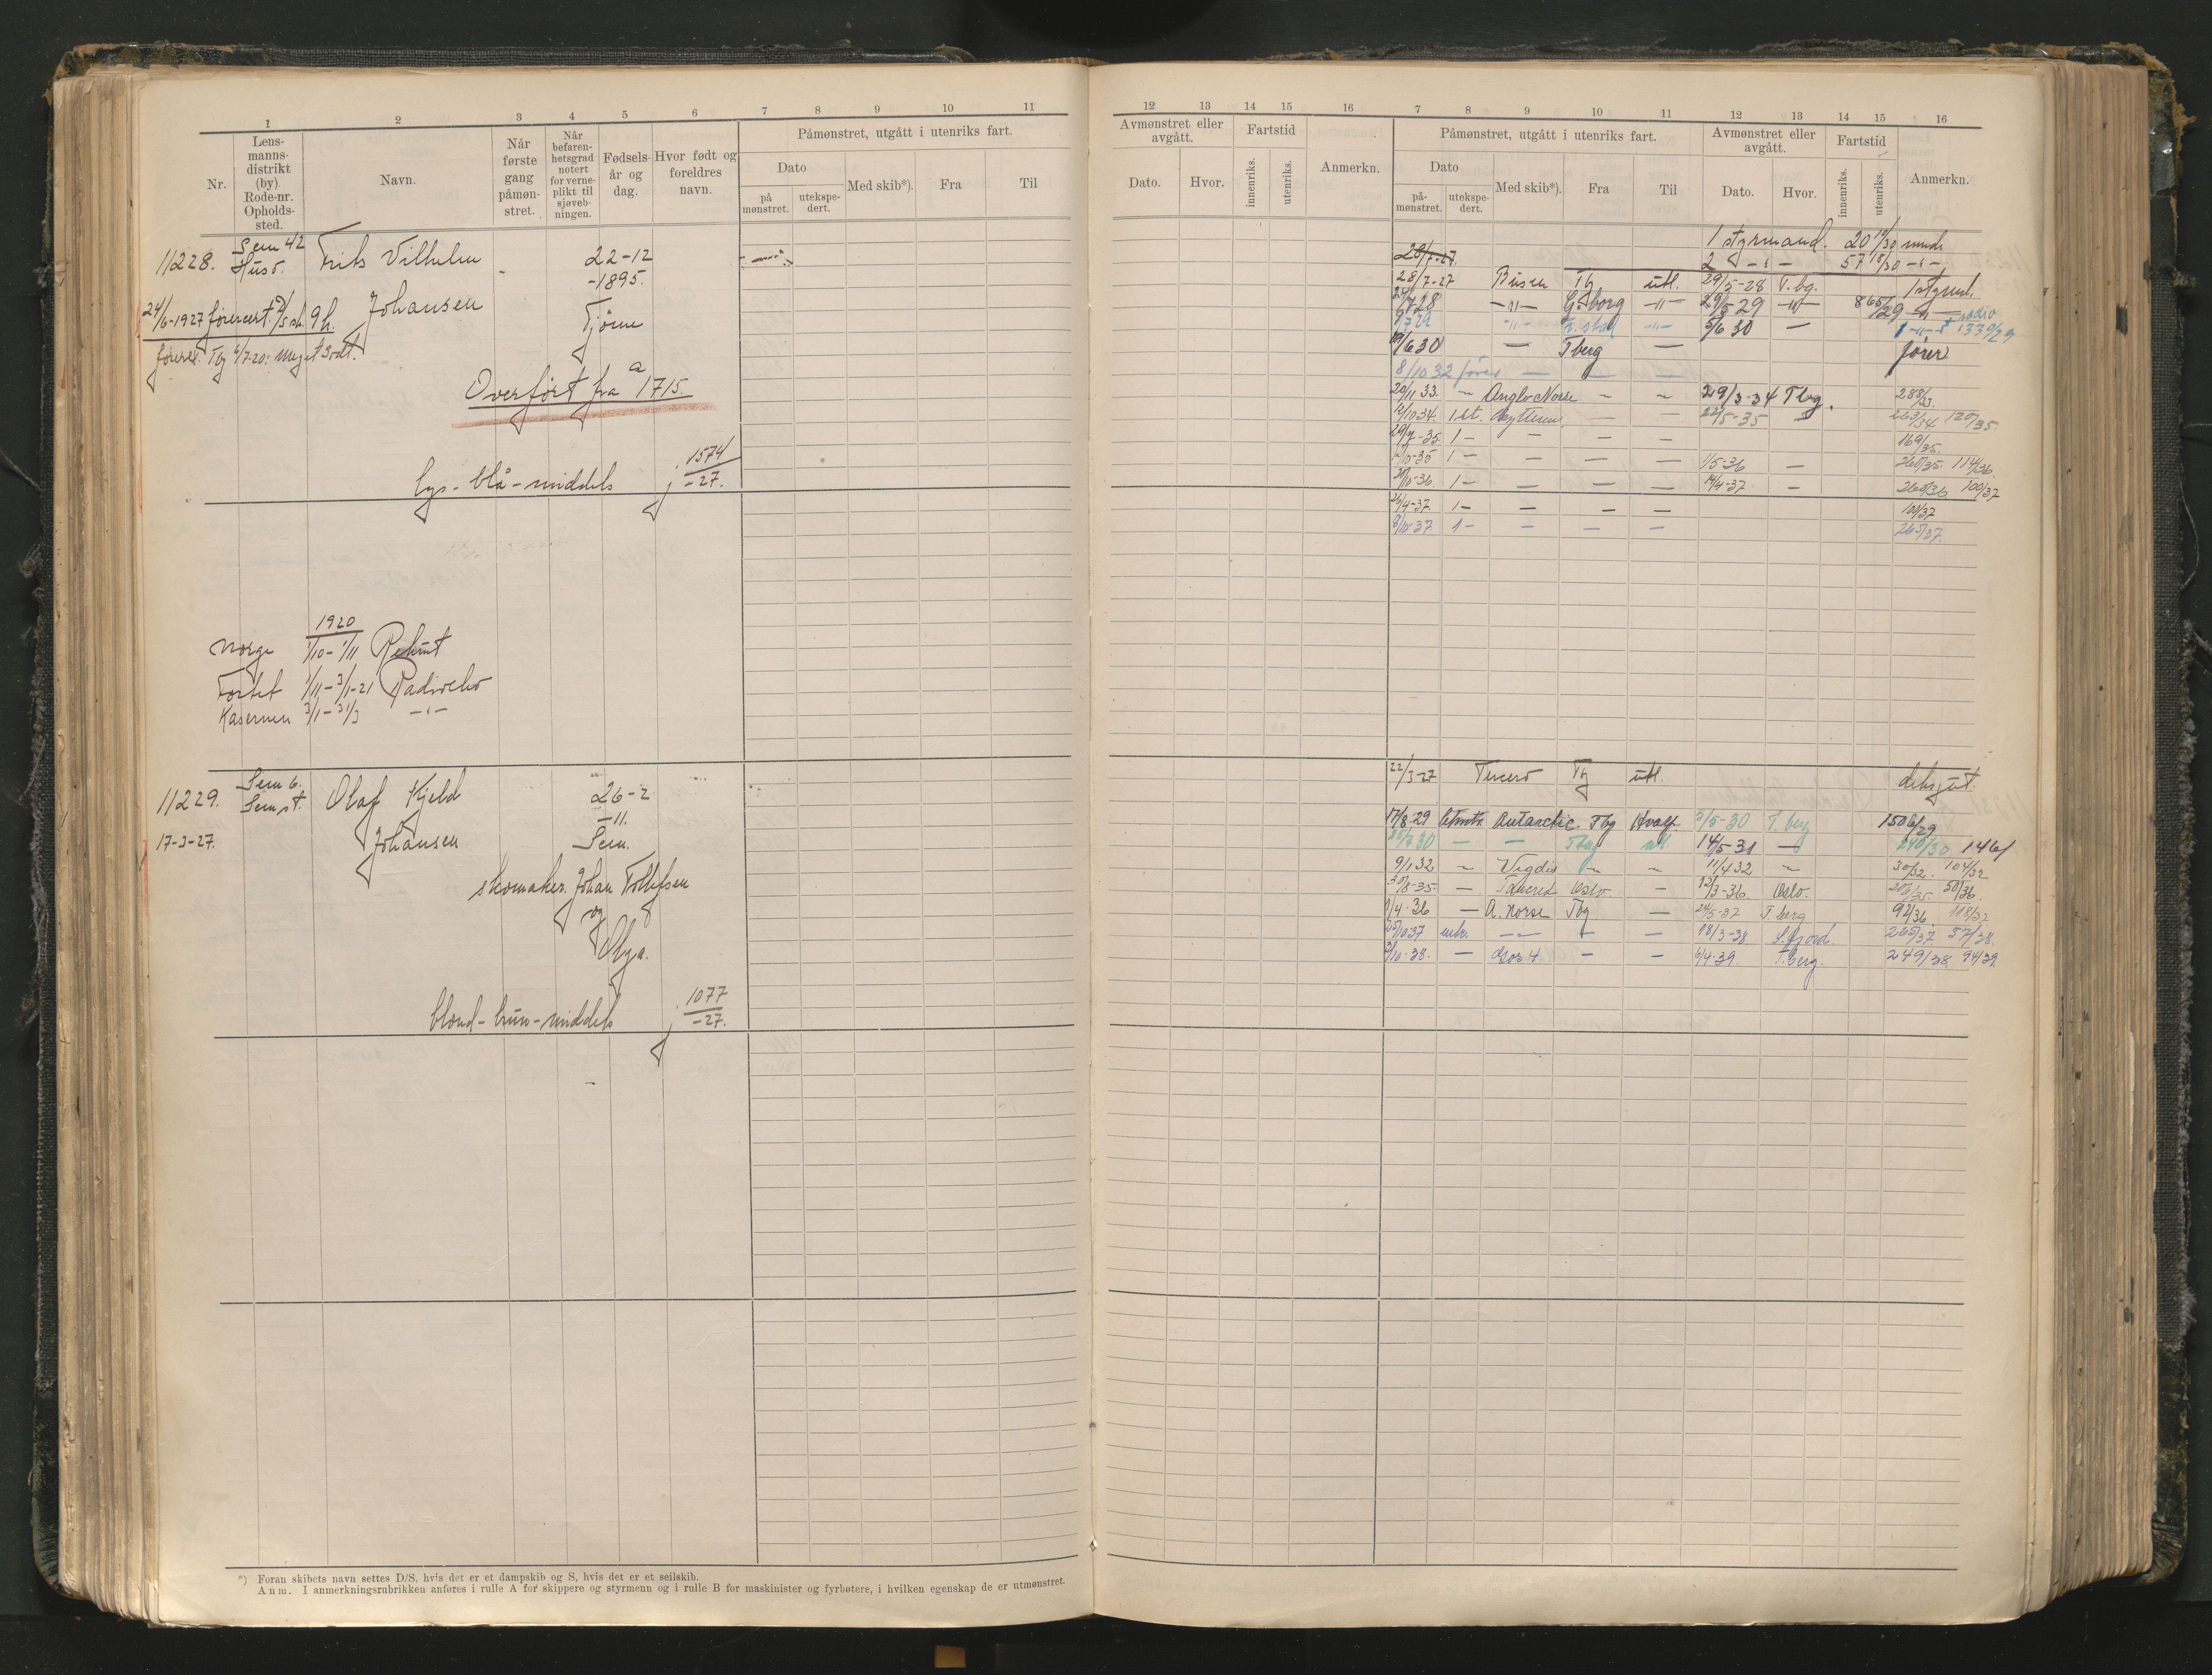 1 2 3 4 5 6 7 8 9 10 11
Nr.
Lens-
manns-
distrikt
(by)
Rode-nr.
Opholds-
sted.
Navn.
Når
første
gang
påmøn-
stret.
Når
befaren-
hetsgrad
notert
for verne-
plikt til
sjøveb-
ningen.
Fødsels-
år og
dag.
Hvor født og
foreldres
navn.
Påmønstret, utgått i utenriks fart.
Dato
på
mønstret.
utekspe-
dert.
Med skib*).
Fra
Til
11228. Sem 42 Husö.
Frits Vilhelm
Johansen
22-12
-1895.
Tjøme
24/6-1927 førercert. 9h.
førercert. Tbg 6/7-20: Meget godt.
Overført fra a 1715.
lys-blå-middels j. 1574/-27.
1920
Norge 1/10-1/11 Rekrut
Fortet 1/11-3/1-21 Radioelev
Kasernen 3/1-31/3 -"-
11229. Sem 6. Sem st.
Olaf Kjeld
Johansen
26-2
-11.
Sem.
17-3-27.
skomaker Johan Tollefsen
og
Olga.
blond-brun-middels j. 1077/-27.
*) Foran skibets navn settes D/S, hvis det er et dampskib og S, hvis det er et seilskib.
Anm. I anmerkningsrubrikken anføres i rulle A for skippere og styrmenn og i rulle B for maskinister og fyrbøtere, i hvilken egenskap de er utmønstret.
12 13 14 15 16 7 8 9 10 11 12 13 14 15 16
Avmønstret eller
avgått.
Dato.
Hvor.
Fartstid
innenriks.
utenriks.
Anmerkn.
Påmønstret, utgått i utenriks fart.
Dato
på-
mønstret.
utekspe-
dert.
Med skib*).
Fra
Til
Avmønstret eller
avgått.
Dato.
Hvor.
Fartstid
innenriks.
utenriks.
Anmerkn.
1 styrmand. 20 19/30 mnde
28/7-27
2 -"- 57 18/30 -"-
28/7-27 Busen Tbg utl. 29/5-28 T.bg. 1 styrmd.
24/7 28 -"- G.borg -"- 29/5 29 -"- 865/29 -"-
9/7 29 -"- -"- 5/6 30 — 1 -"- + radio 1339/29
/6 30 — Tberg — fører
8/10 32 fører — — —
20/11 33. — Anglo Norse — — 29/3-34 Tbg. 288/33.
10 34. 1 st. — — 22/5-35 263/34 120/35.
29/7-35 1 — — — — 169/35.
/10-35 1 — — — — 1/5-36 — 260/35. 114/36
-36. 1 — — — — 14/4-37 — 260/36 100/37
26/4-37. 1 — — — — 100/37
8/10-37. 1 — — — — 265/37.
22/3-27 Tercero Tbg utl. deksgut.
17/8-29 Antarctic. Tbg Hvalf. /5-30 T. berg 1506/29
25/7 30 — — Tbg utl. 14/5-31 — 240/30 146/
9/1 32 — Vigdis — — 11/4 32 — 30/32. 104/32
30/8-35 — Oslo — 12/3-36 Oslo. 206/35 50/36.
1/4-36 — A. Norse Tbg — 24/5-37 T. berg 92/36. 118/37
25/10 37 — — — 18/3-38 S.fjord. 265/37 57/38.
3/10-38. — Gos 4 — — 6/4-39. T.berg. 249/38 94/39.